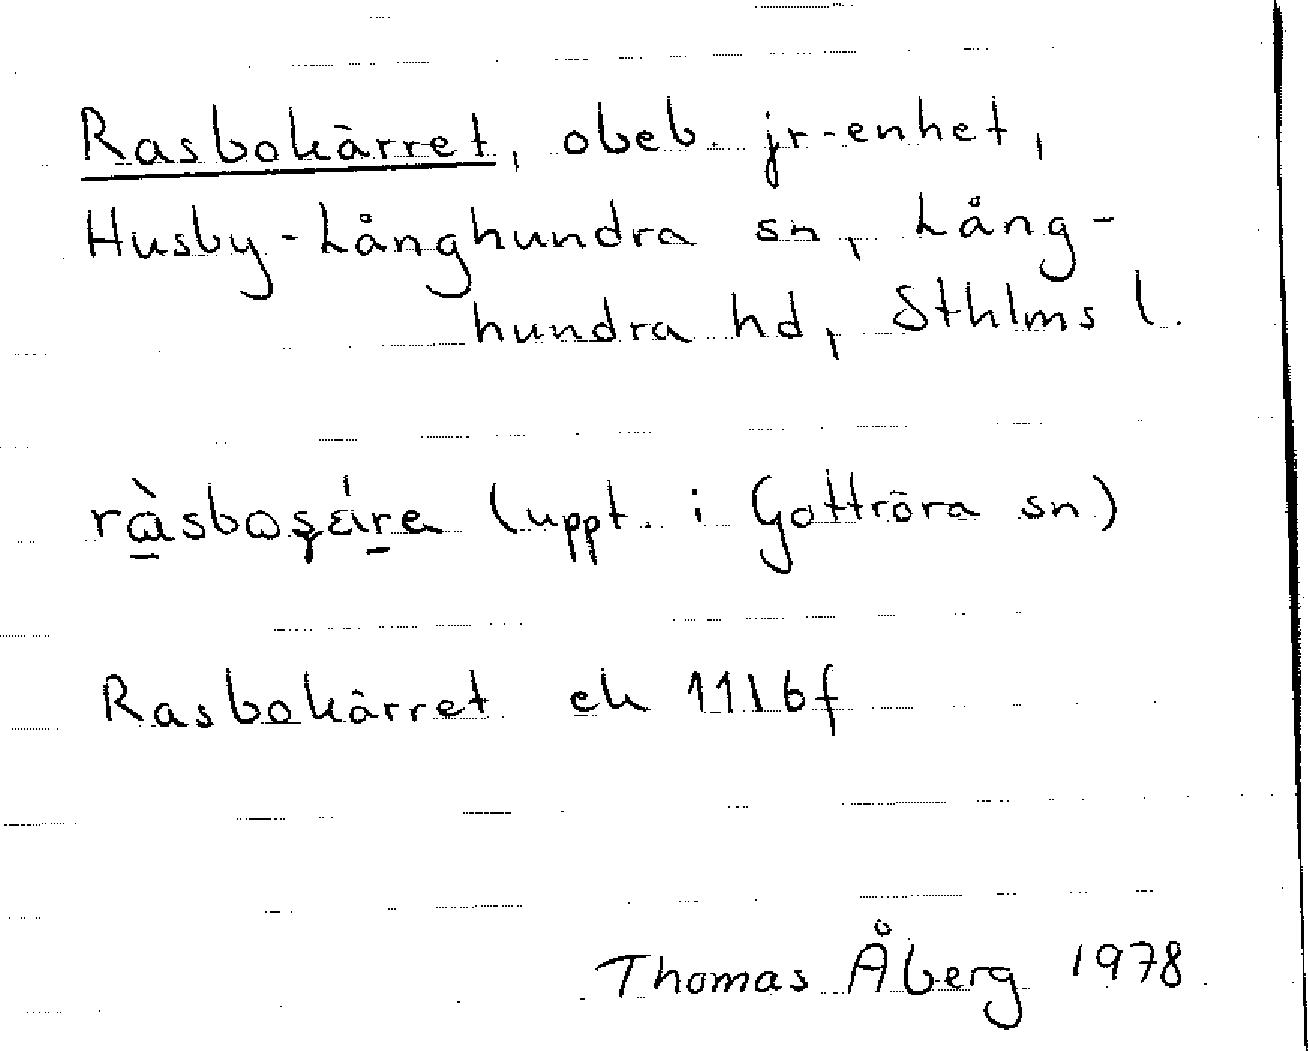 Rasbokärret, obeb. jr-enhet,
Husby-Långhundra sn, Lång-
hundra hd, Sthlms l.
(uppt. i Gottröra sn)
Rasbokärret ek 11I6f
Thomas Åberg 1978